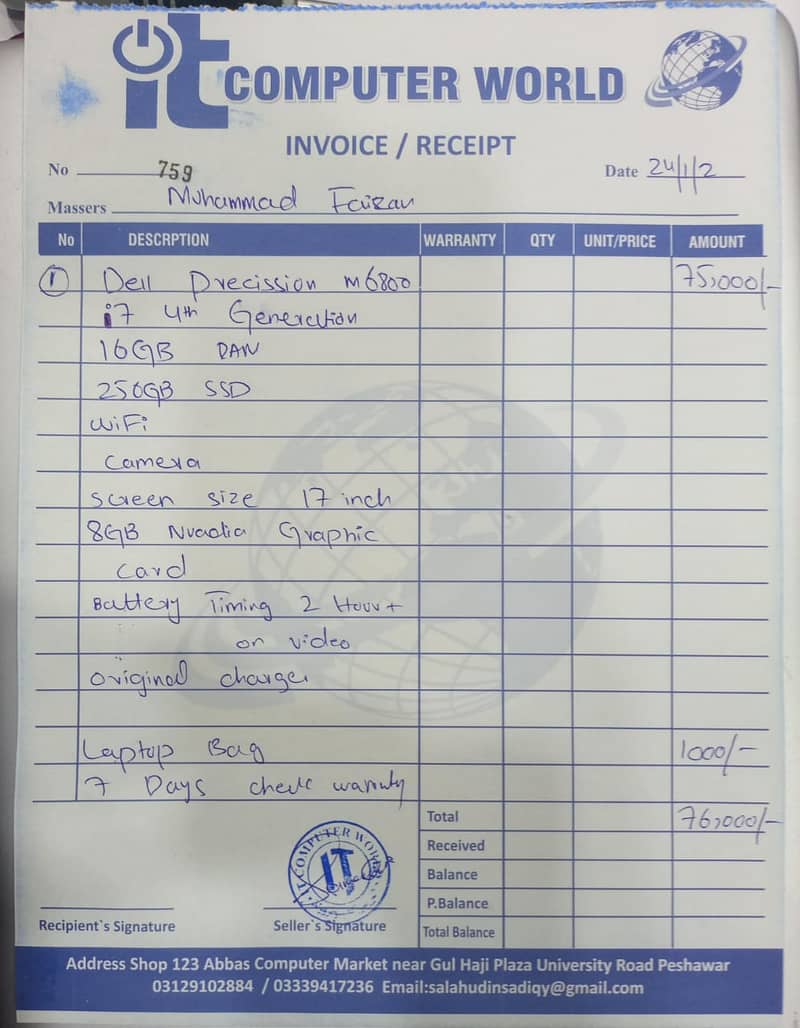 it COMPUTER WORLD
INVOICE / RECEIPT
No 759
Date 24/1/2
Massers Muhammad Faizan
No DESCRPTION WARRANTY QTY UNIT/PRICE AMOUNT
1 Dell Precission M6800 75,000/-
i7 4th Generation
16GB
256GB SSD
WiFi
Camera
Screen size 17 inch
8GB Nvadia Graphic
Card
Battery Timing 2 Hour+
on video
Original charger
Laptop Bag 1000/-
7 Days check warranty
Total 76,000/-
Received
Balance
P.Balance
Total Balance
IT COMPUTER WORLD
IT
Recipient`s Signature
Seller`s Signature
Address Shop 123 Abbas Computer Market near Gul Haji Plaza University Road Peshawar
03129102884 / 03339417236 Email:salahudinsadiqy@gmail.com